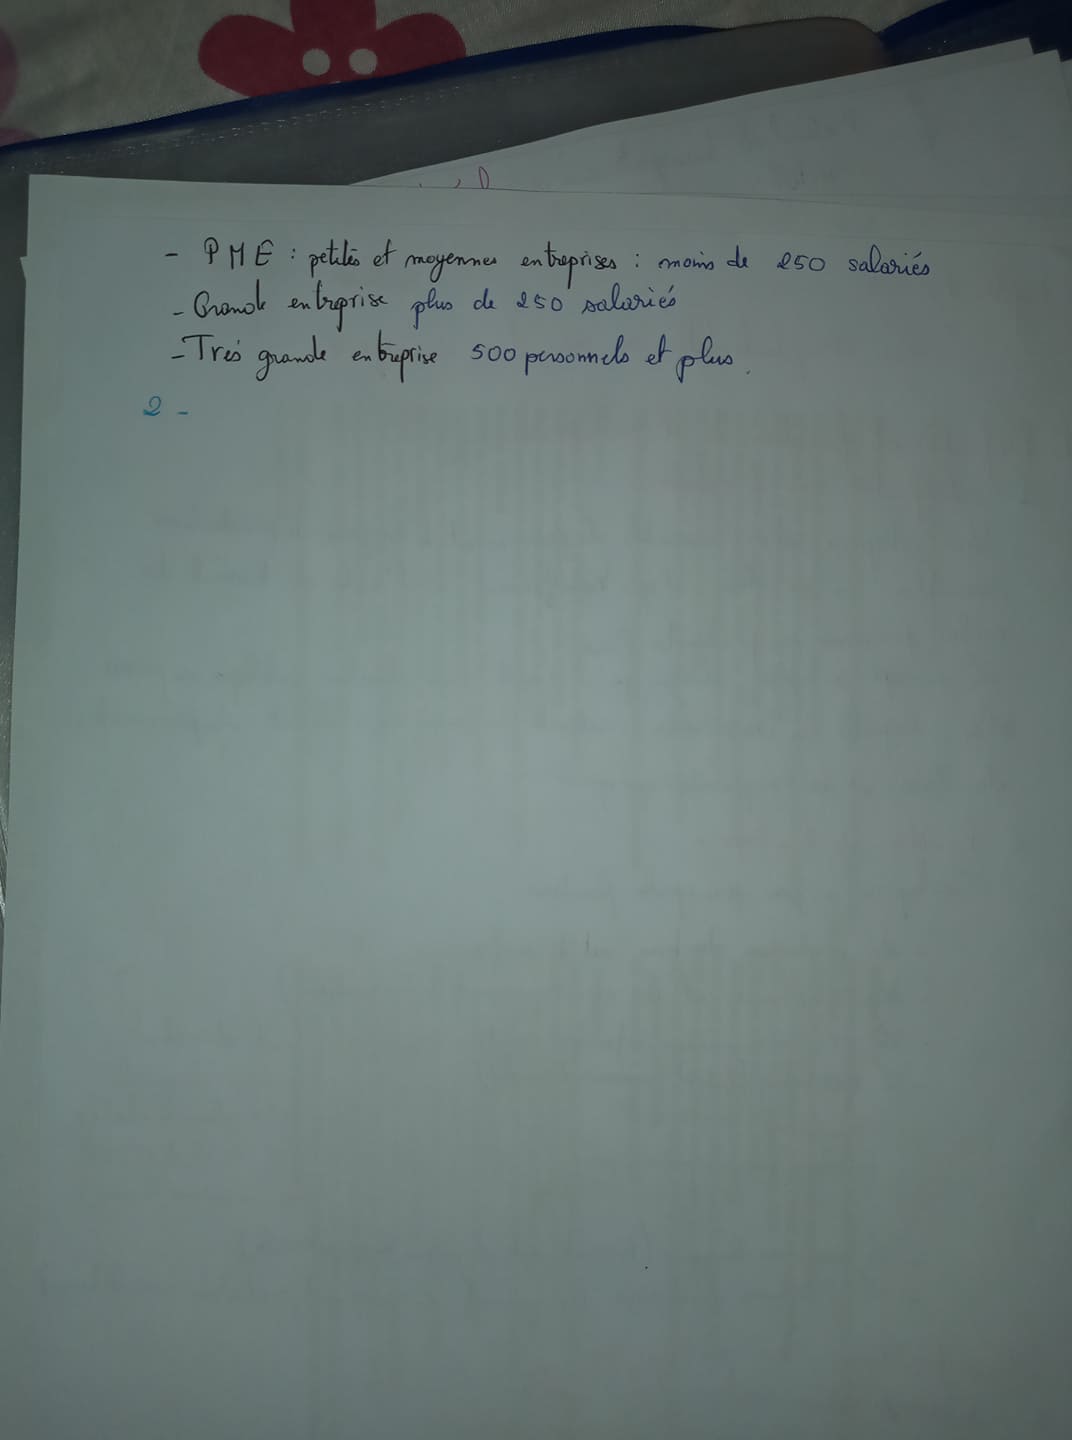 - PME : petites et moyennes entreprises : moins de 250 salariés
- Grande entreprise plus de 250 salariés
- Trés grande entreprise 500 personnels et plus.
2 -